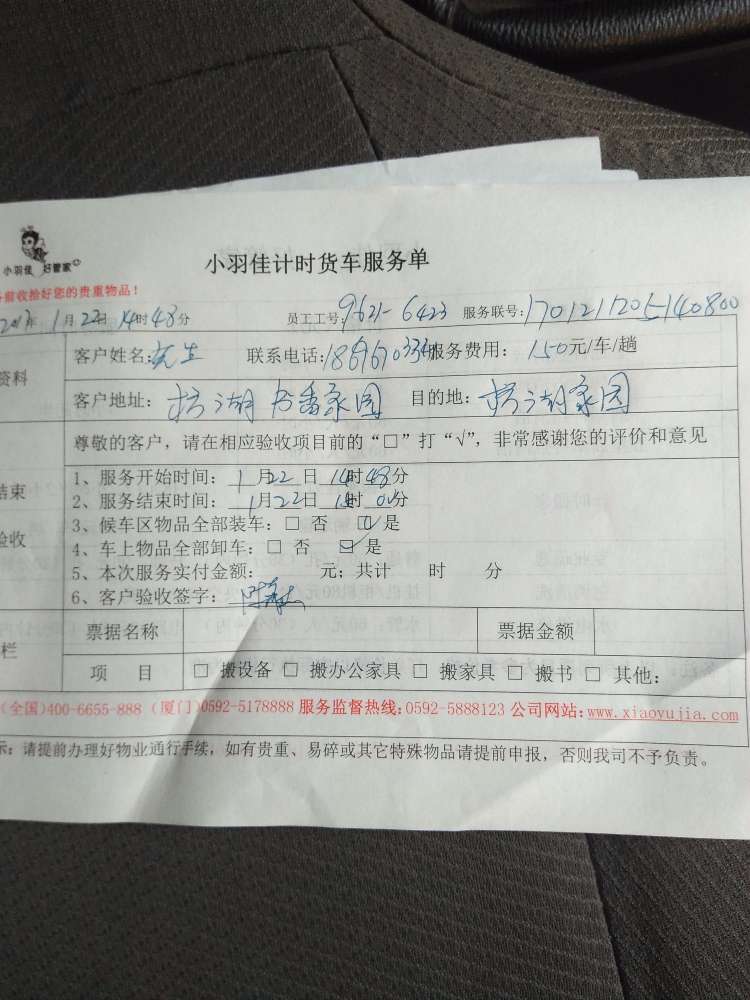 小羽佳 好管家
小羽佳计时货车服务单
前收拾好您的贵重物品！
年1月22日14时48分 员工工号：9621-6423 服务联号：1701211205140800
资料 客户姓名： 联系电话： 服务费用：150元/车/趟
客户地址： 湖 家园 目的地： 湖家园
尊敬的客户，请在相应验收项目前的“□”打“√”，非常感谢您的评价和意见
结束 1、服务开始时间：1月22日14时48分
2、服务结束时间：1月22日 时 分
验收 3、候车区物品全部装车：□ 否 ☑ 是
4、车上物品全部卸车：□ 否 ☑ 是
5、本次服务实付金额： 元；共计 时 分
6、客户验收签字：
栏 票据名称 票据金额
项 目 □ 搬设备 □ 搬办公家具 □ 搬家具 □ 搬书 □ 其他：
(全国)400-6655-888 (厦门)0592-5178888 服务监督热线:0592-5888123 公司网站:www.xiaoyujia.com
示：请提前办理好物业通行手续，如有贵重、易碎或其它特殊物品请提前申报，否则我司不予负责。